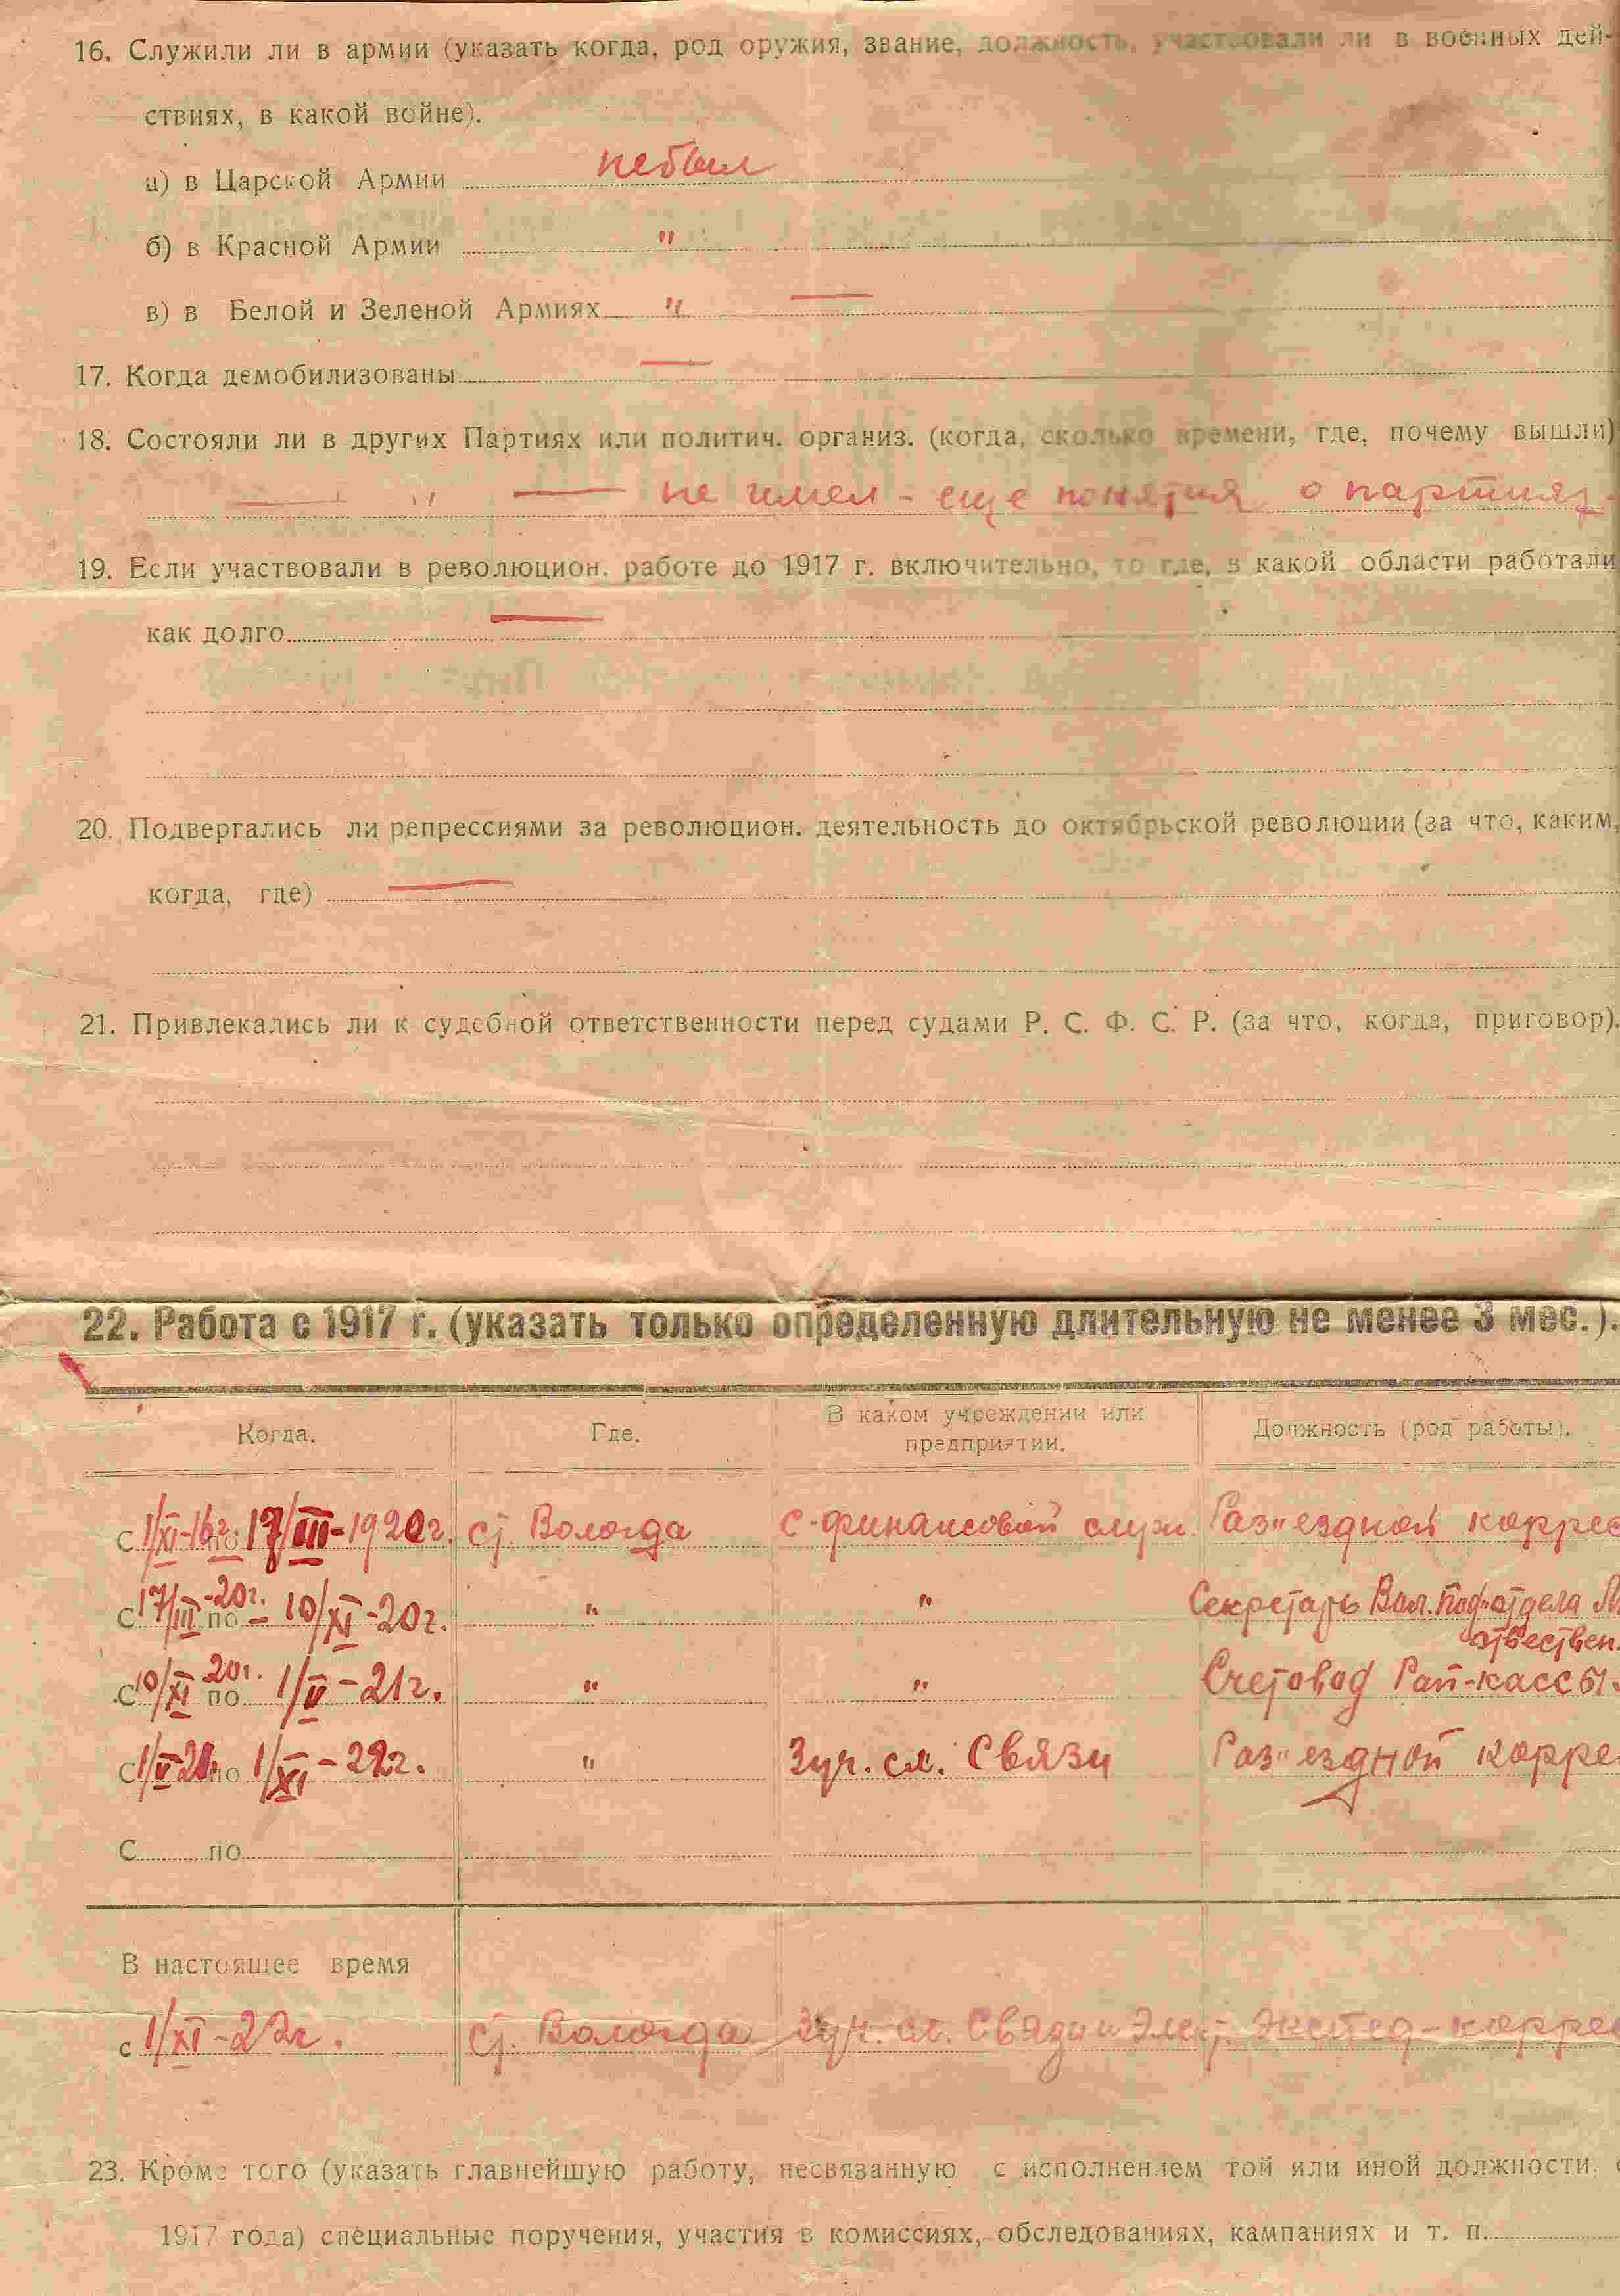 16. Служили ли в армии (указать когда, род оружия, звание, должность, участвовали ли в военных дей-
ствиях, в какой войне).
а) в Царской Армии небыл
б) в Красной Армии "
в) в Белой и Зеленой Армиях " —
17. Когда демобилизованы —
18. Состояли ли в других Партиях или политич. организ. (когда, сколько времени, где, почему вышли)
— " — не имел - еще понятия о партиях.
19. Если участвовали в революцион. работе до 1917 г. включительно, то где, в какой области работали
как долго —
20. Подвергались ли репрессиями за революцион. деятельность до октябрьской революции (за что, каким,
когда, где) —
21. Привлекались ли к судебной ответственности перед судами Р. С. Ф. С. Р. (за что, когда, приговор).
22. Работа с 1917 г. (указать только определенную длительную не менее 3 мес.).
Когда. Где. В каком учреждении или предприятии. Должность (род работы).
с 1/XI-16г. по 17/III-1920г. ст. Вологда с-финансовой служ. Раз"ездной коррес
с 17/III-20г. по - 10/XI-20г. " " Секретарь Вол. Под-отдела
ответствен.
с 10/XI 20г. по 1/V-21г. " " Счетовод Рай-кассы.
с 1/V 21 по 1/XI-22г. " 3 уч. сл. Связи Раз"ездной корре
с по
В настоящее время
с 1/XI-22г. ст. Вологда 3 уч. сл. Связи и Элект. Экспед-коррес
23. Кроме того (указать главнейшую работу, несвязанную с исполнением той или иной должности. с
1917 года) специальные поручения, участия в комиссиях, обследованиях, кампаниях и т. п.